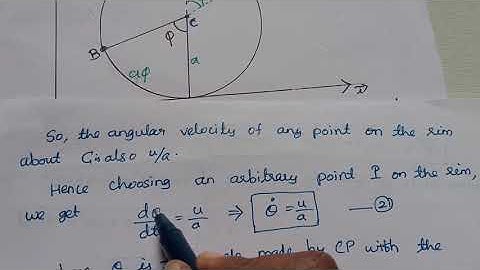 C
φ
B
a
aφ
x
So, the angular velocity of any point on the rim
about C is also u/a.
Hence choosing an arbitrary point P on the rim,
we get dφ/dt = u/a ⇒ θ̇ = u/a —②
θ is made by CP with the